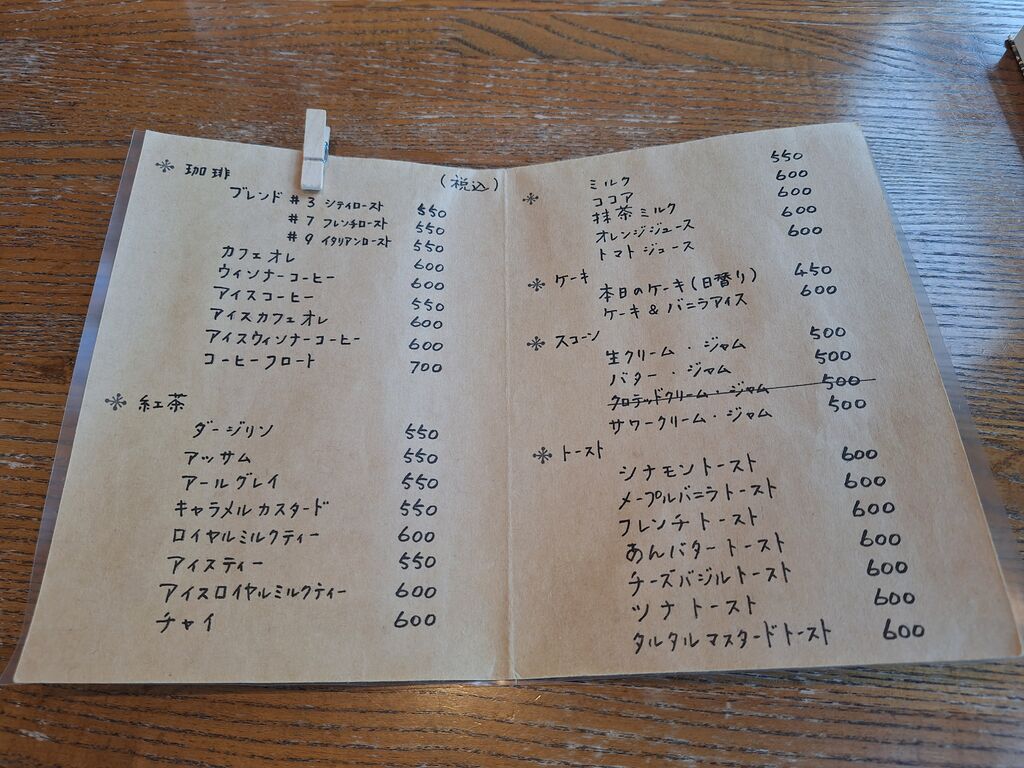 * 珈琲 (税込)
ブレンド #3 シティロースト 550
#7 フレンチロースト 550
#9 イタリアンロースト 550
カフェオレ 600
ウィンナーコーヒー 600
アイスコーヒー 550
アイスカフェオレ 600
アイスウィンナーコーヒー 600
コーヒーフロート 700
* 紅茶
ダージリン 550
アッサム 550
アールグレイ 550
キャラメルカスタード 550
ロイヤルミルクティー 600
アイスティー 550
アイスロイヤルミルクティー 600
チャイ 600
*
ミルク 550
ココア 600
抹茶ミルク 600
オレンジジュース 600
トマトジュース 600
* ケーキ
本日のケーキ(日替り) 450
ケーキ&バニラアイス 600
* スコーン
生クリーム・ジャム 500
バター・ジャム 500
クロテッドクリーム・ジャム 500
サワークリーム・ジャム 500
* トースト
シナモントースト 600
メープルバニラトースト 600
フレンチトースト 600
あんバタートースト 600
チーズバジルトースト 600
ツナトースト 600
タルタルマスタードトースト 600